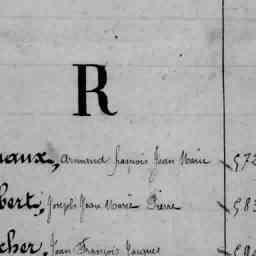 R
naux, Armand françois Jean Marie
bert, Joseph Jean Marie Pierre
cher, Jean François Jacques